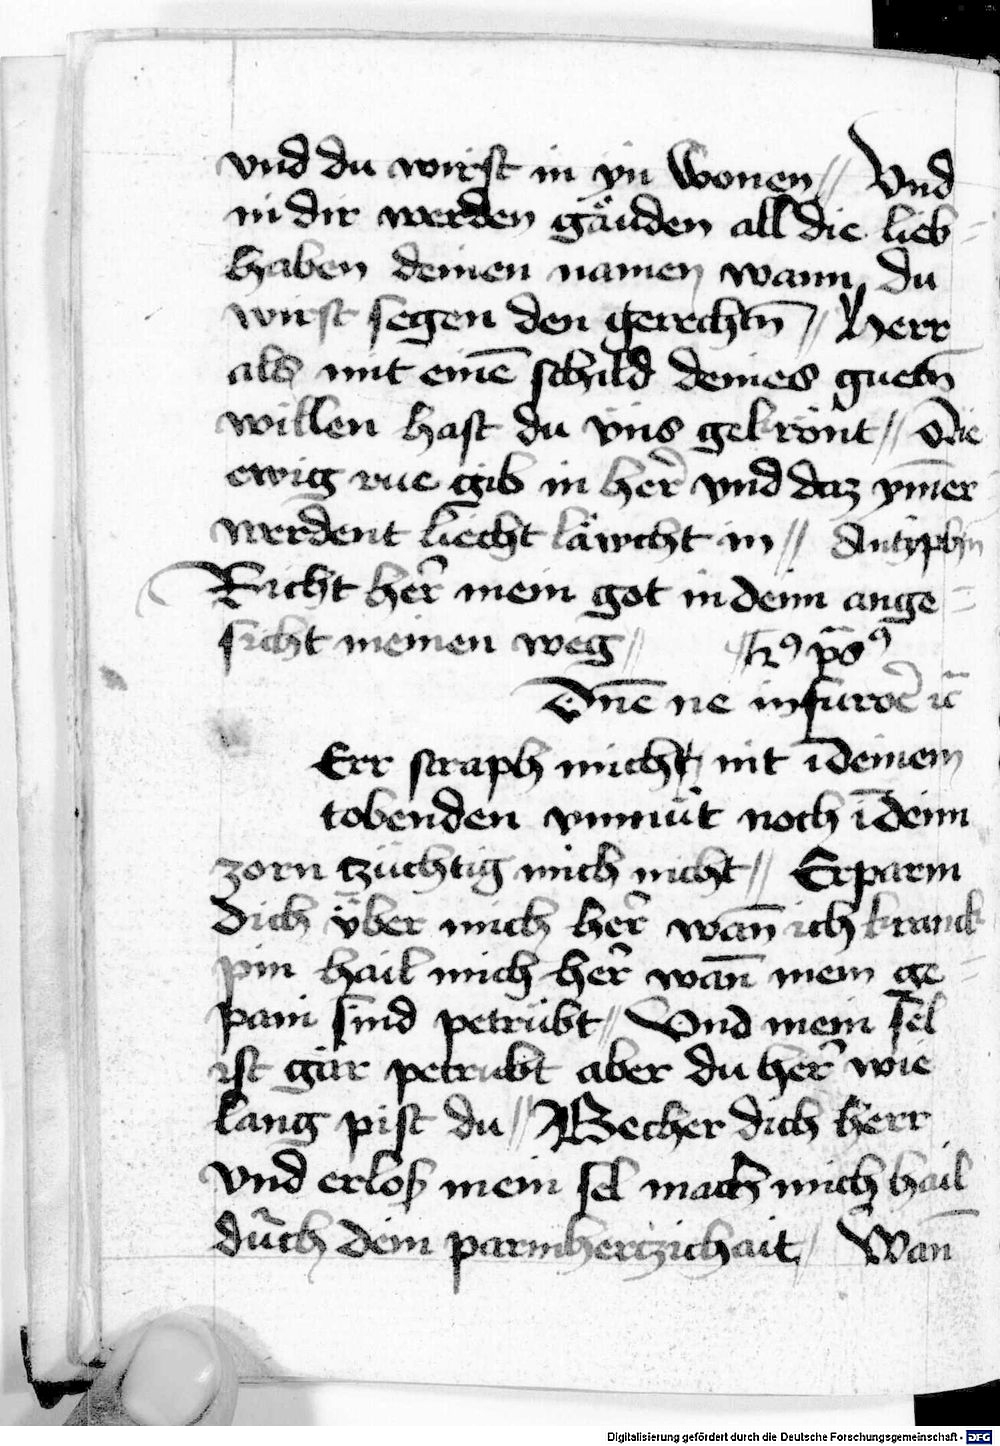 vnd du wirst in yn wonen // Vnd
in dir werden gäuden all die lieb=
haben deinen namen wann du
wirst segen den gerechtn̄ // Herr
als mit einē schild deines guetn̄
willen hast du vns gekrönt // Die
ewig rue gib in her̄ vnd daz ym̄er
werdent liecht läwcht in // Antyphn
Richt her̄ mein got in deim ange=
sicht meinen weg //
Dn̄e ne in furoř
Err straph micht nit ī deinem
tobenden vnmüt noch ī deim
zorn tzüchtig mich nicht // Erparm
dich über mich her̄ wan̄ ich kranck
pin hail mich her̄ wan̄ mein ge=
pain sind petrübt // Vnd mein sel
ist gar petrubt aber du her̄ wie
lang pist du // Becher dich herr
vnd erlos mein sel mach mich hail
durch dein parmhertzichait / Wan̄
Digitalisierung gefördert durch die Deutsche Forschungsgemeinschaft - DFG